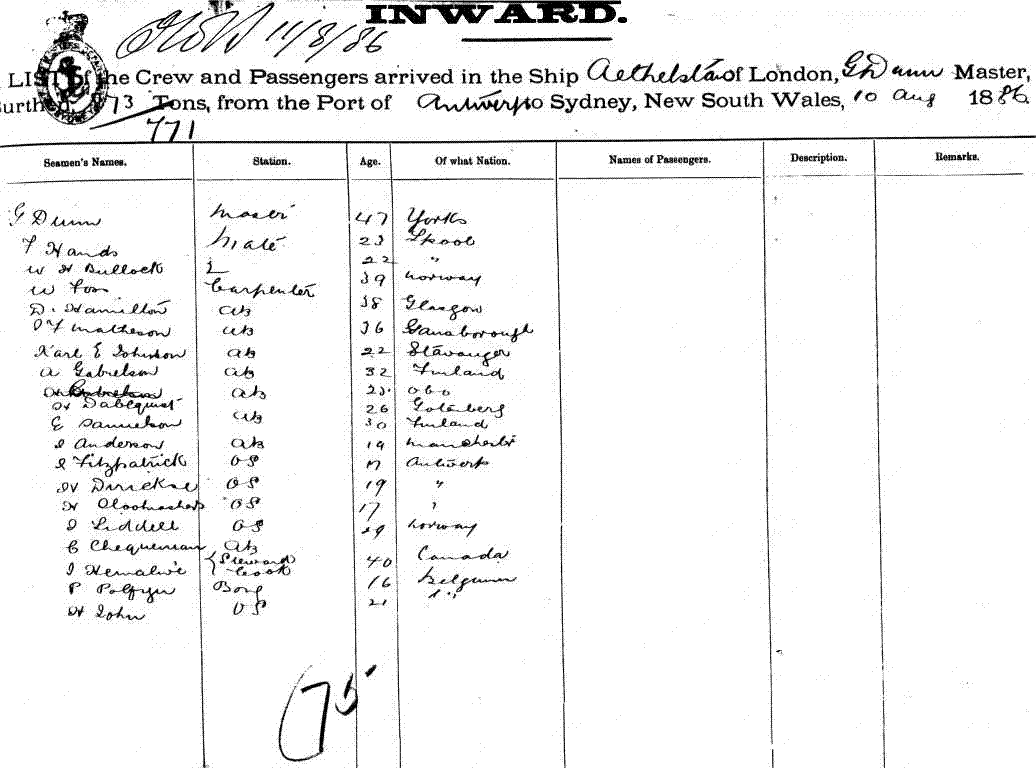 INWARD.
11/8/86
LIST of the Crew and Passengers arrived in the Ship Aethelstan of London, G Dunn Master,
Burthen, 873 Tons, from the Port of Antwerp to Sydney, New South Wales, 10 Aug 1886
771
Seamen's Names. Station. Age. Of what Nation. Names of Passengers. Description. Remarks.
G Dunn Master 47 Yorks
F Hands Mate 23 Lpool
W H Bullock 2 22 "
W Foss Carpenter 39 Norway
D. Hamilton ab 38 Glasgow
Matheson ab 36 Gansborough
Karl E Johnson ab 22 Stavanger
A Gabrelson ab 32 Finland
ab 23 obo
H Dablquist 26 Gotenberg
E Samuelson ab 30 Finland
J Anderson ab 19 Manchester
J Fitzpatrick OS 17 Antwerp
H Dirickse OS 19 "
H OS 17 "
J Liddell OS 29 Norway
C Chequeman ab
J { Steward Cook 40 Canada
P Polfyn Boy 16 Belgium
H John OS 21 "
75